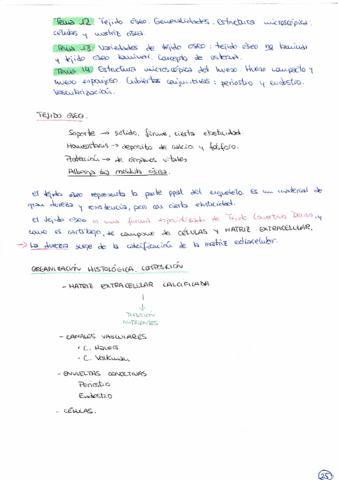 Tema 12. Tejido óseo. Generalidades. Estructura microscópica.
células y matriz ósea.
Tema 13. Variedades de tejido óseo: tejido óseo no laminar
y tejido óseo laminar. Concepto de osteona.
Tema 14. Estructura microscópica del hueso. Hueso compacto y
hueso esponjoso. Cubiertas conjuntivas: periostio y endostio.
Vascularización.
TEJIDO ÓSEO.
Soporte → sólido, firme, cierta elasticidad.
Homeostasis → depósito de calcio y fósforo.
Protección → de órganos vitales
Alberga la médula ósea.
El tejido óseo representa la parte ppal del esqueleto. Es un material de
gran dureza y resistencia, pero con cierta elasticidad.
El tejido óseo es una forma especializada de Tejido Conectivo Denso, y
como el cartílago, se compone de CÉLULAS y MATRIZ EXTRACELULAR.
→ La dureza surge de la calcificación de la matriz extracelular.
ORGANIZACIÓN HISTOLÓGICA. COMPOSICIÓN
- MATRIZ EXTRACELULAR CALCIFICADA
↓
DIFUSIÓN
NUTRIENTES
- CANALES VASCULARES
• C. Havers
• C. Volkmann
- ENVUELTAS CONECTIVAS
Periostio
Endostio
- CÉLULAS.
25